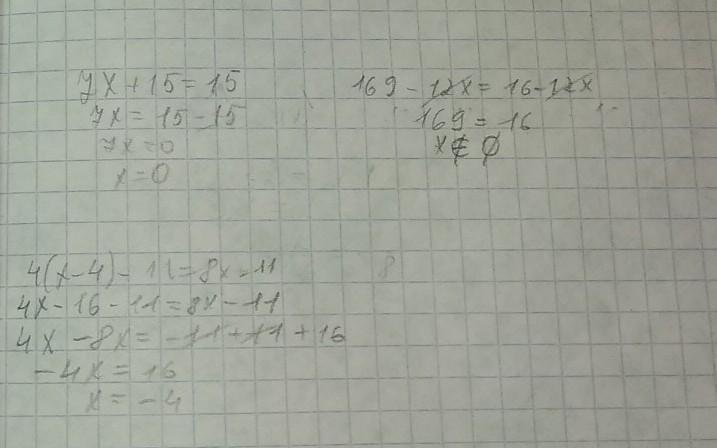 7x + 15 = 15
7x = 15 - 15
7x = 0
x = 0
169 - 12x = 16 - 12x
169 = 16
x ∉ ∅
4(x - 4) - 11 = 8x - 11
4x - 16 - 11 = 8x - 11
4x - 8x = -11 + 11 + 16
-4x = 16
x = -4